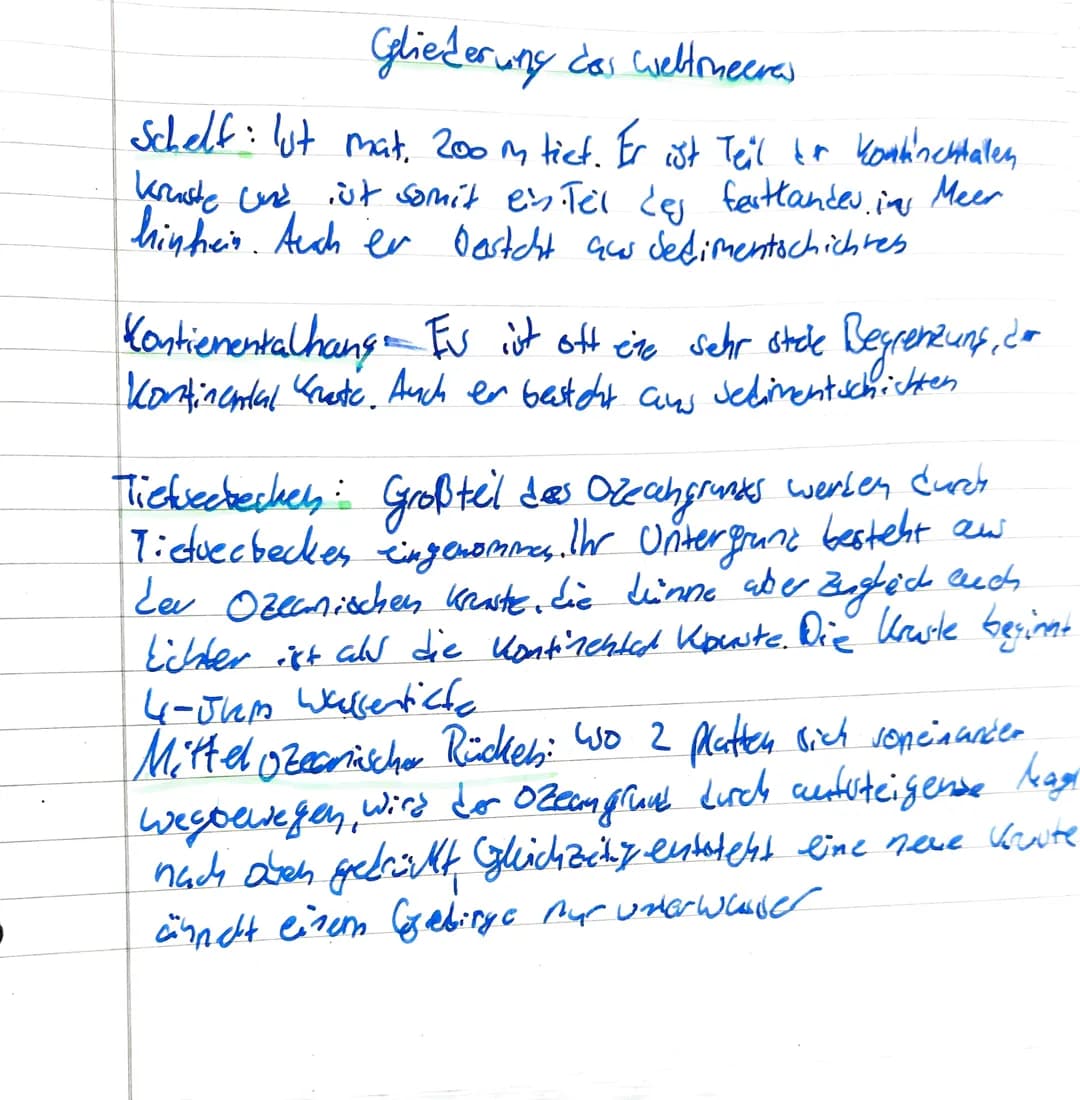 Gliederung des Weltmeeres
Schelf: Ist mat. 200 m tief. Er ist Teil der Kontinentalen
Kruste und ist somit ein Teil des festlandes ins Meer
hinhein. Auch er besteht aus Sedimentschichten
Kontienentalhang – Es ist oft eine sehr steile Begrenzung, der
Kontinental Kruste. Auch er besteht aus Sedimentschichten
Tiefseebecken: Großteil des Ozeangrundes werden durch
Tiefseebecken eingenommen. Ihr Untergrund besteht aus
der Ozeanischen Kruste, die dünne aber zugleich auch
dichter ist als die Kontinental Kruste. Die Kruste beginnt
4-5km Wassertiefe
Mittel ozeanischer Rücken: Wo 2 platten sich voneinander
wegbewegen, wird der Ozeangrund durch aufsteigende Mag
nach oben gedrückt, Gleichzeitig entsteht eine neue Kruste
ähnelt einem Gebirge nur unterwasser